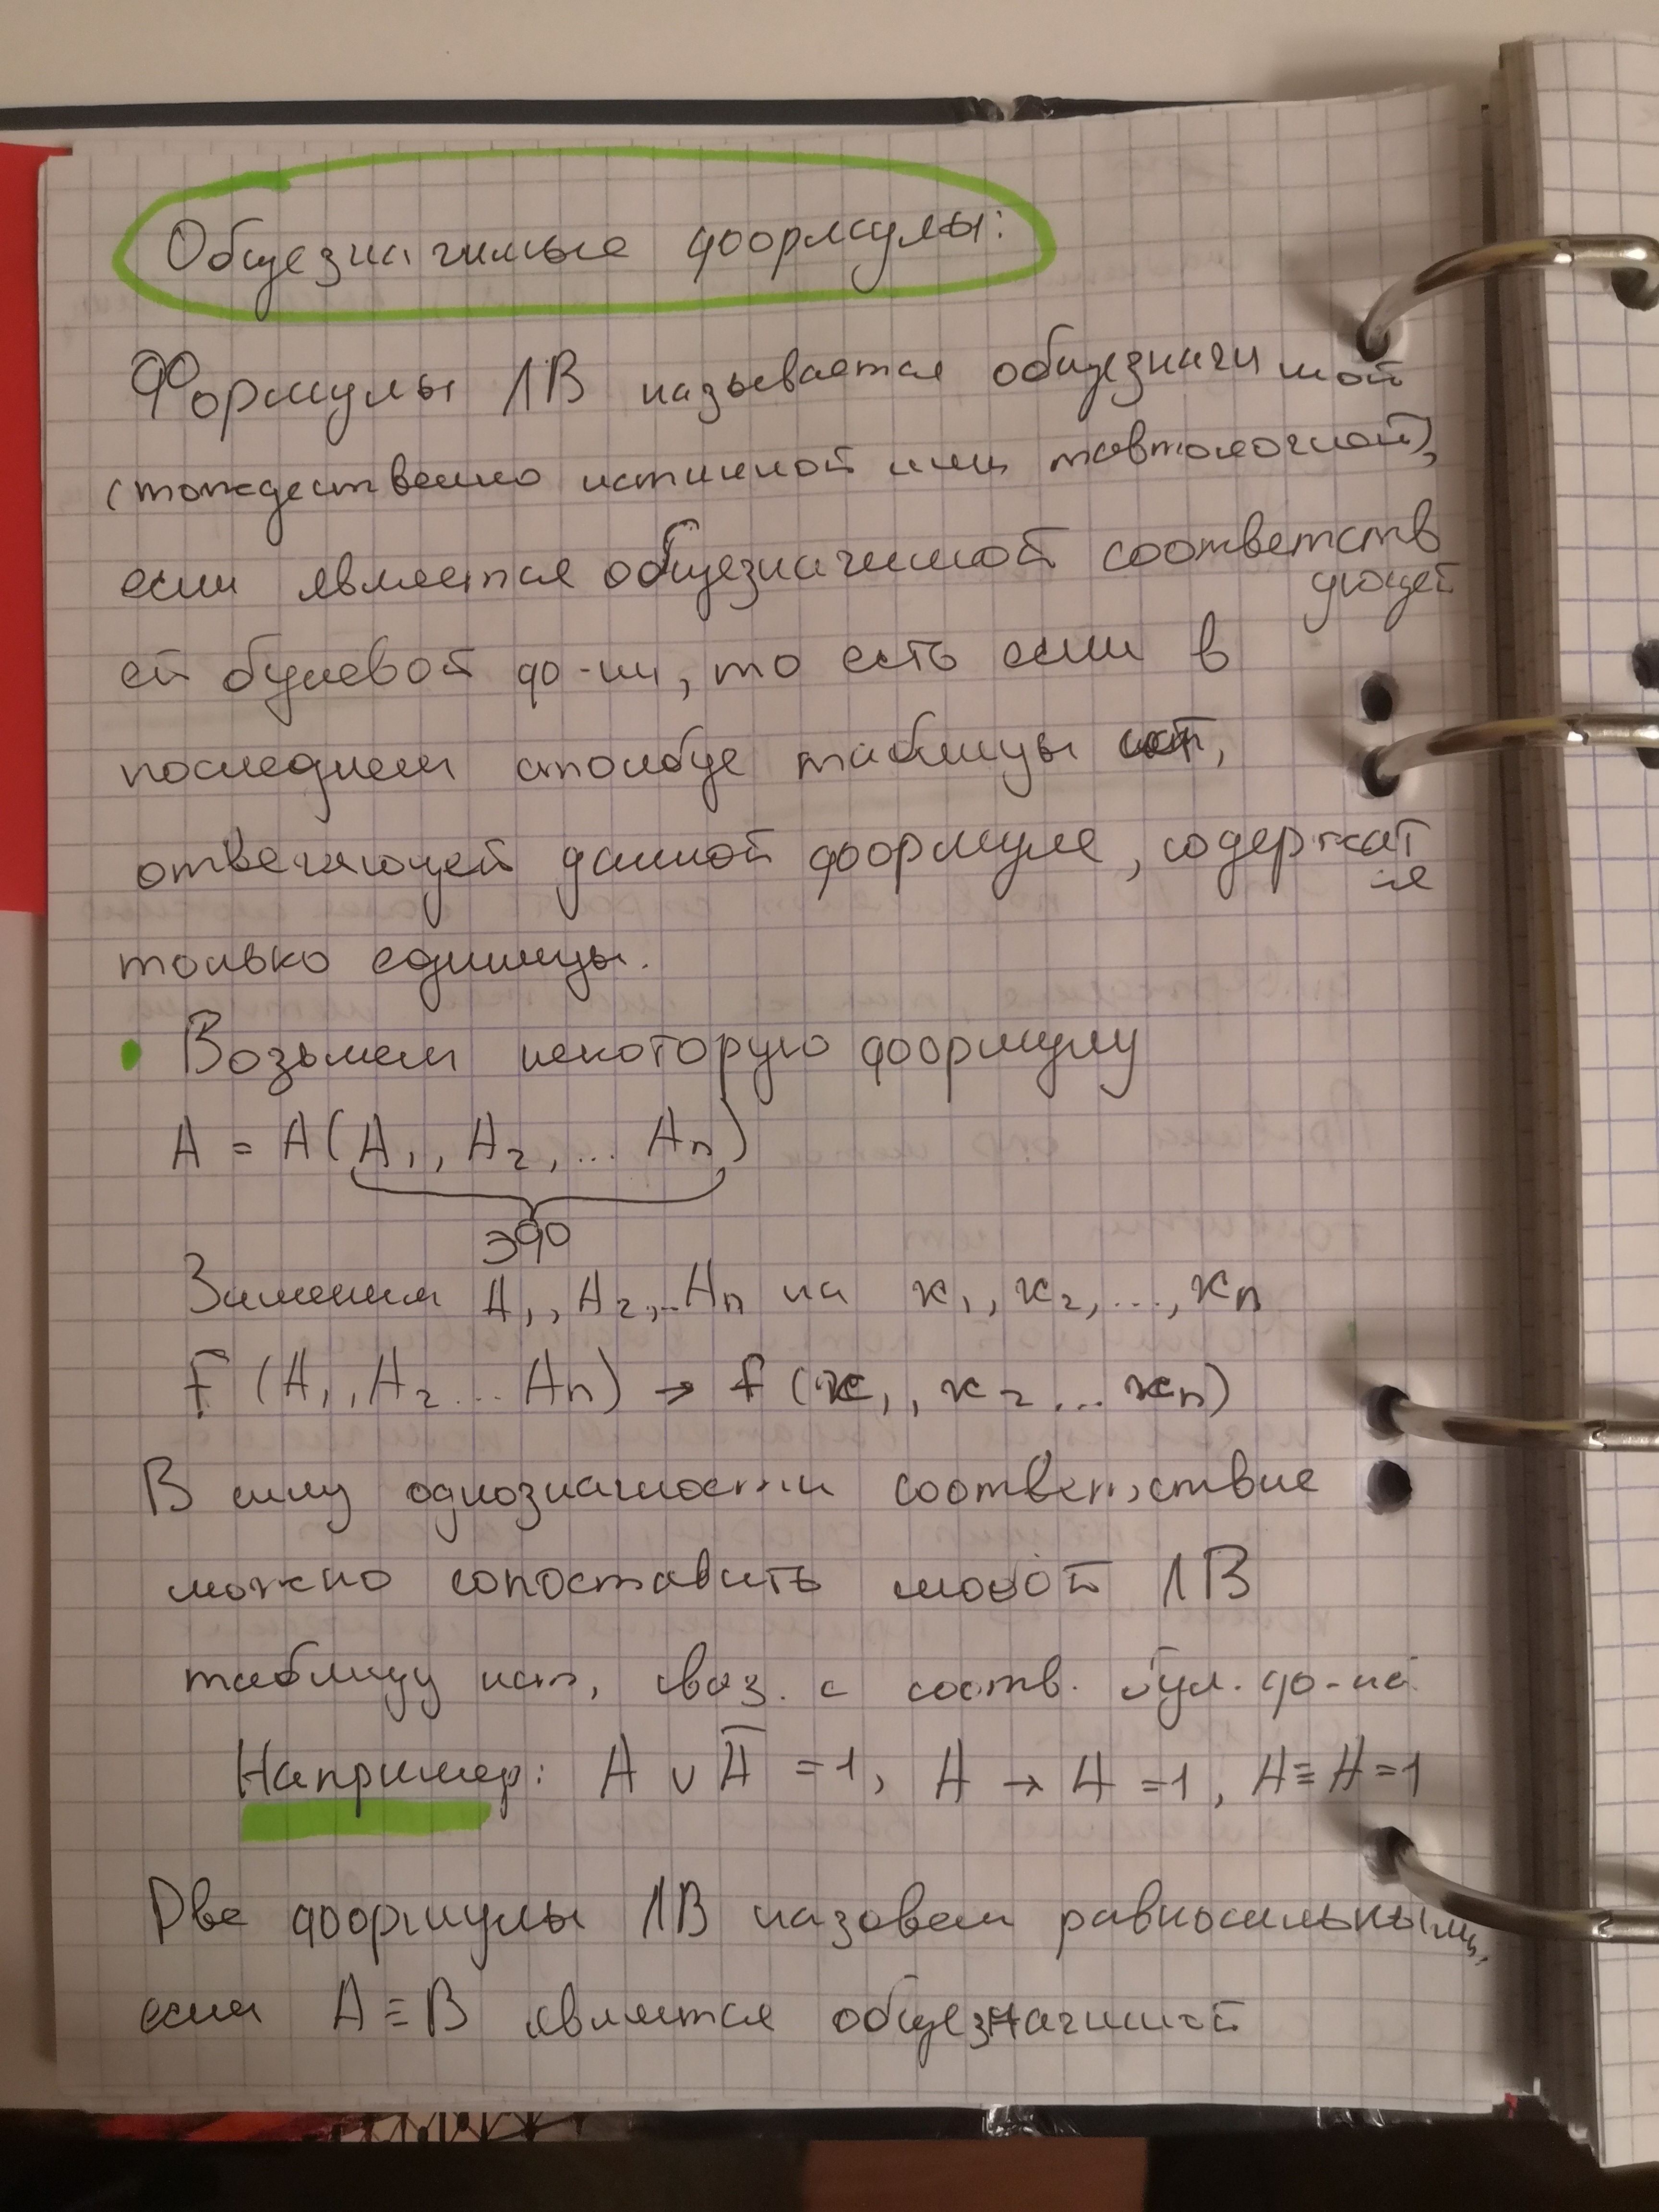 Общезначимые формулы:
Формулы ЛВ называется общезначимой
(тождественно истинной или тавтологичной),
если является общезначимой соответствующей
ей булевой ф-ии, то есть если в
последнем столбце таблицы ист,
отвечающей данной формуле, содержатся
только единицы.
• Возьмем некоторую формулу
A = A(A₁, A₂, ... Aₙ)
ЭФ
Заменим A₁, A₂, .. Aₙ на x₁, x₂, ..., xₙ
F (A₁, A₂ ... Aₙ) → f (x₁, x₂ ... xₙ)
В силу однозначности соответствие
можно сопоставить любой ЛВ
таблицу ист, связ. с соотв. бул. ф-ей
Например: A ∨ A̅ = 1, A → A = 1, A ≡ A = 1
Две формулы ЛВ назовем равносильными,
если A ≡ B является общезначимой